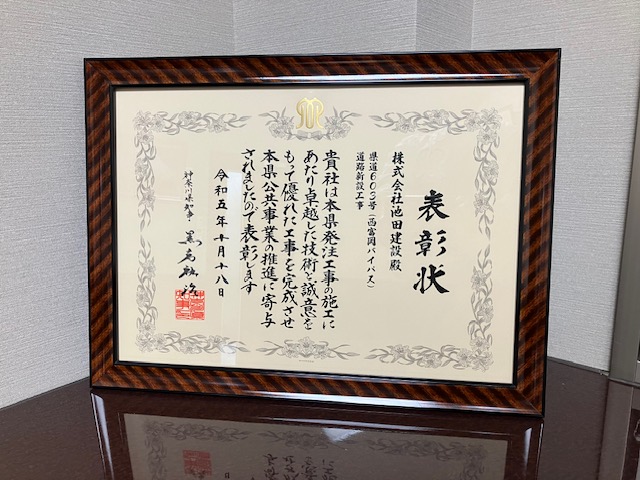 表彰状
株式会社池田建設殿
県道603号（西富岡バイパス）
道路新設工事
貴社は本県発注工事の施工に
あたり卓越した技術と誠意を
もって優れた工事を完成させ
本県公共事業の推進に寄与
されましたので表彰します
令和五年十月十八日
神奈川県知事 黒岩祐治